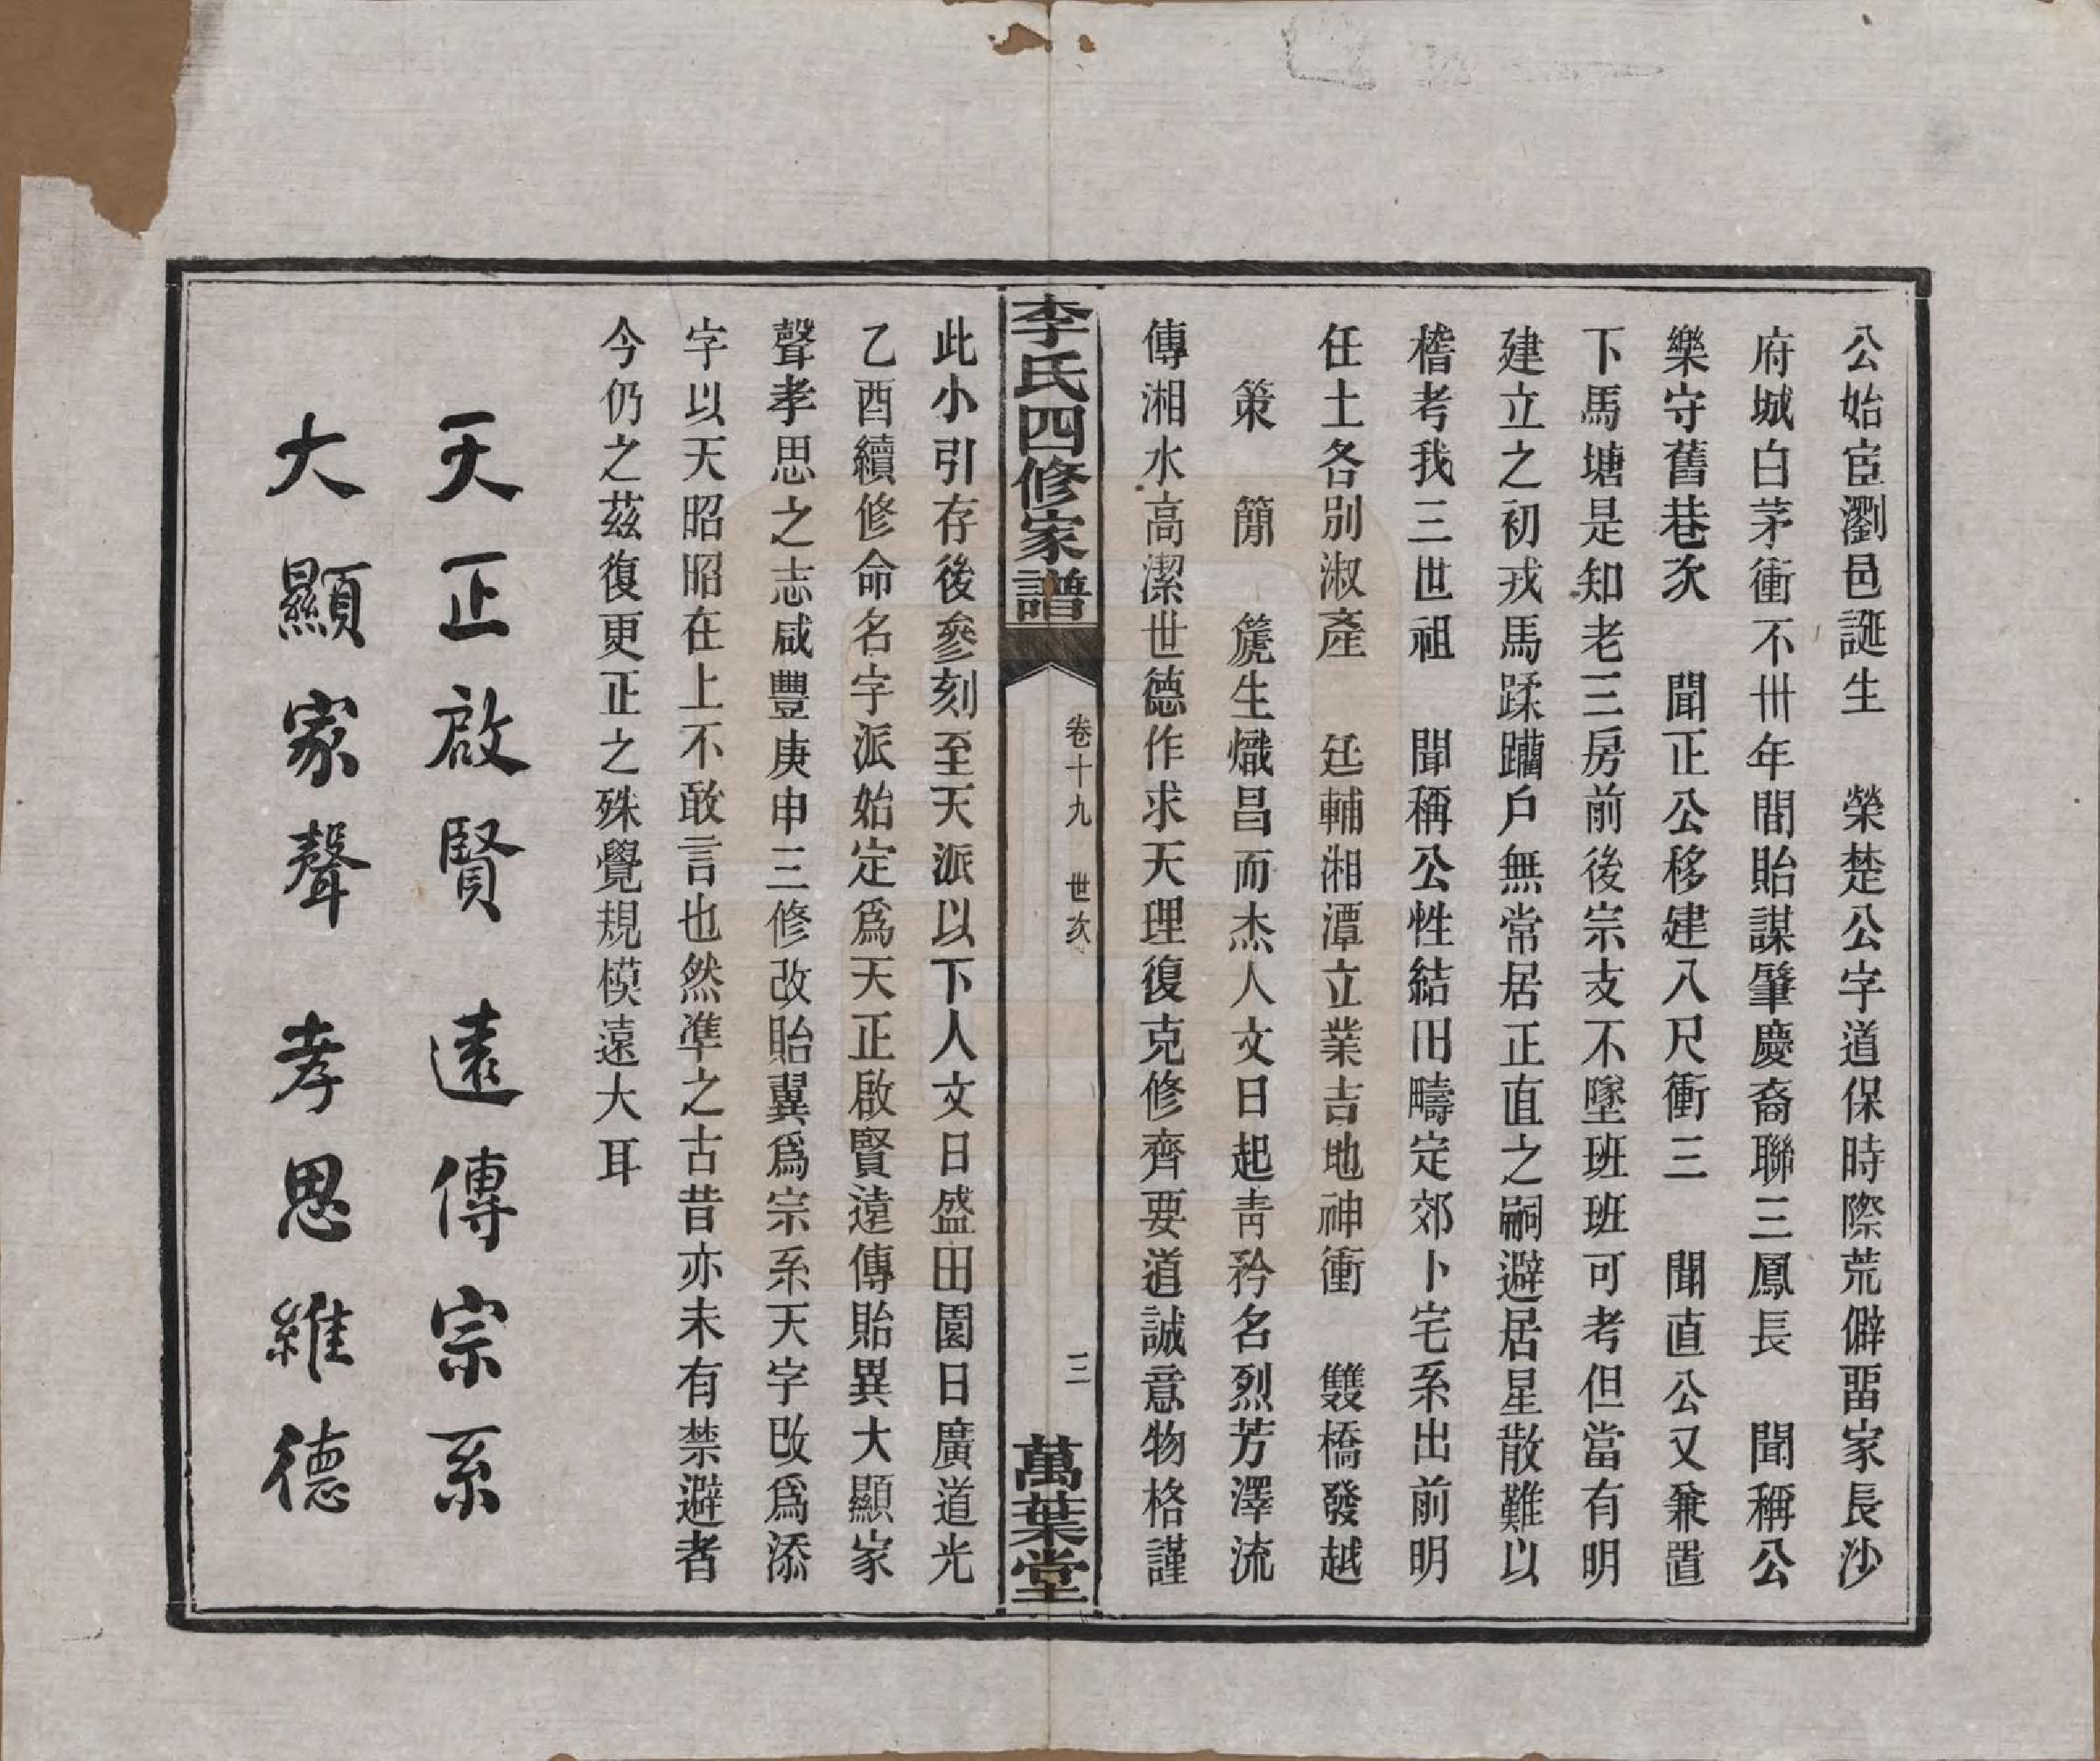 公始宦瀏邑誕生　榮楚公字道保時際荒僻畱家長沙
府城白茅衝不卅年間貽謀肇慶裔聯三鳳長　聞稱公
樂守舊巷次　聞正公移建入尺衝三　聞直公又兼置
下馬塘是知老三房前後宗支不墜班班可考但當有明
建立之初戎馬蹂躪戶無常居正直之嗣避居星散難以
稽考我三世祖　聞稱公性結田疇定郊卜宅系出前明
任土各別淑產　廷輔湘潭立業吉地神衝　雙橋發越
策　簡　篪生熾昌而杰人文日起靑矜名烈芳澤流
傳湘水高潔世德作求天理復克修齊要道誠意物格謹
李氏四修家譜
卷十九　世次
三
萬葉堂
此小引存後參刻至天派以下人文日盛田園日廣道光
乙酉續修命名字派始定爲天正啟賢遠傳貽異大顯家
聲孝思之志咸豐庚申三修改貽翼爲宗系天字改爲添
字以天昭昭在上不敢言也然準之古昔亦未有禁避者
今仍之茲復更正之殊覺規模遠大耳
天正啟賢　遠傳宗系
大顯家聲　孝思維德